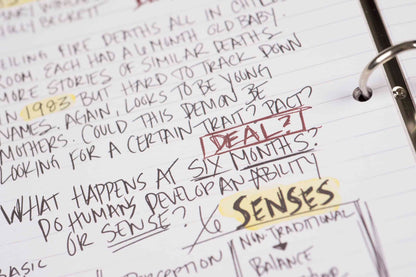 MARY WINCH
LLY BECKETT
EILING FIRE DEATHS ALL IN CHILD
ROOM. EACH HAD A 6 MONTH OLD BABY.
MORE STORIES OF SIMILAR DEATHS
IN 1983 BUT HARD TO TRACK DOWN
NAMES. AGAIN, LOOKS TO BE YOUNG
MOTHERS. COULD THIS DEMON BE
LOOKING FOR A CERTAIN TRAIT? PACT?
DEAL?
WHAT HAPPENS AT SIX MONTHS?
DO HUMANS DEVELOP AN ABILITY
OR SENSE?
SENSES
BASIC
NON-TRADITIONAL
CEPTION
BALANCE